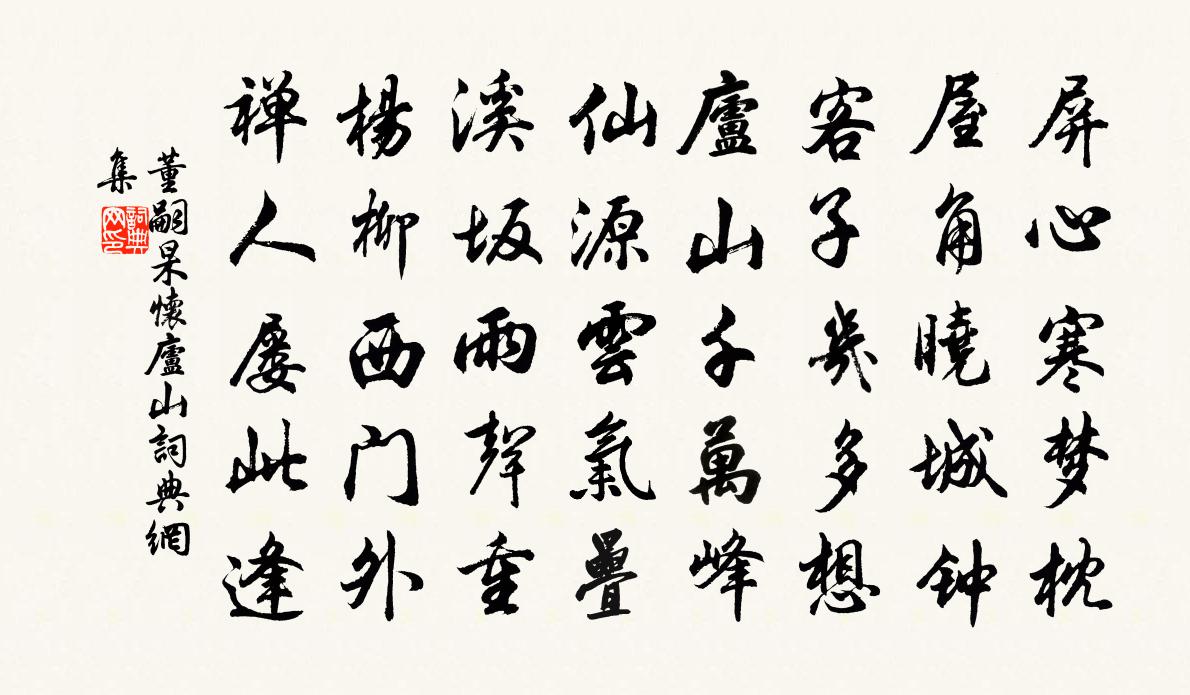 屏心寒梦枕
屋角曉城钟
客子幾多想
廬山千萬峰
仙源雲氣疊
溪坂雨聲重
楊柳西门外
禅人屢此逢
董嗣杲懷廬山詞典網
集
詞典网印